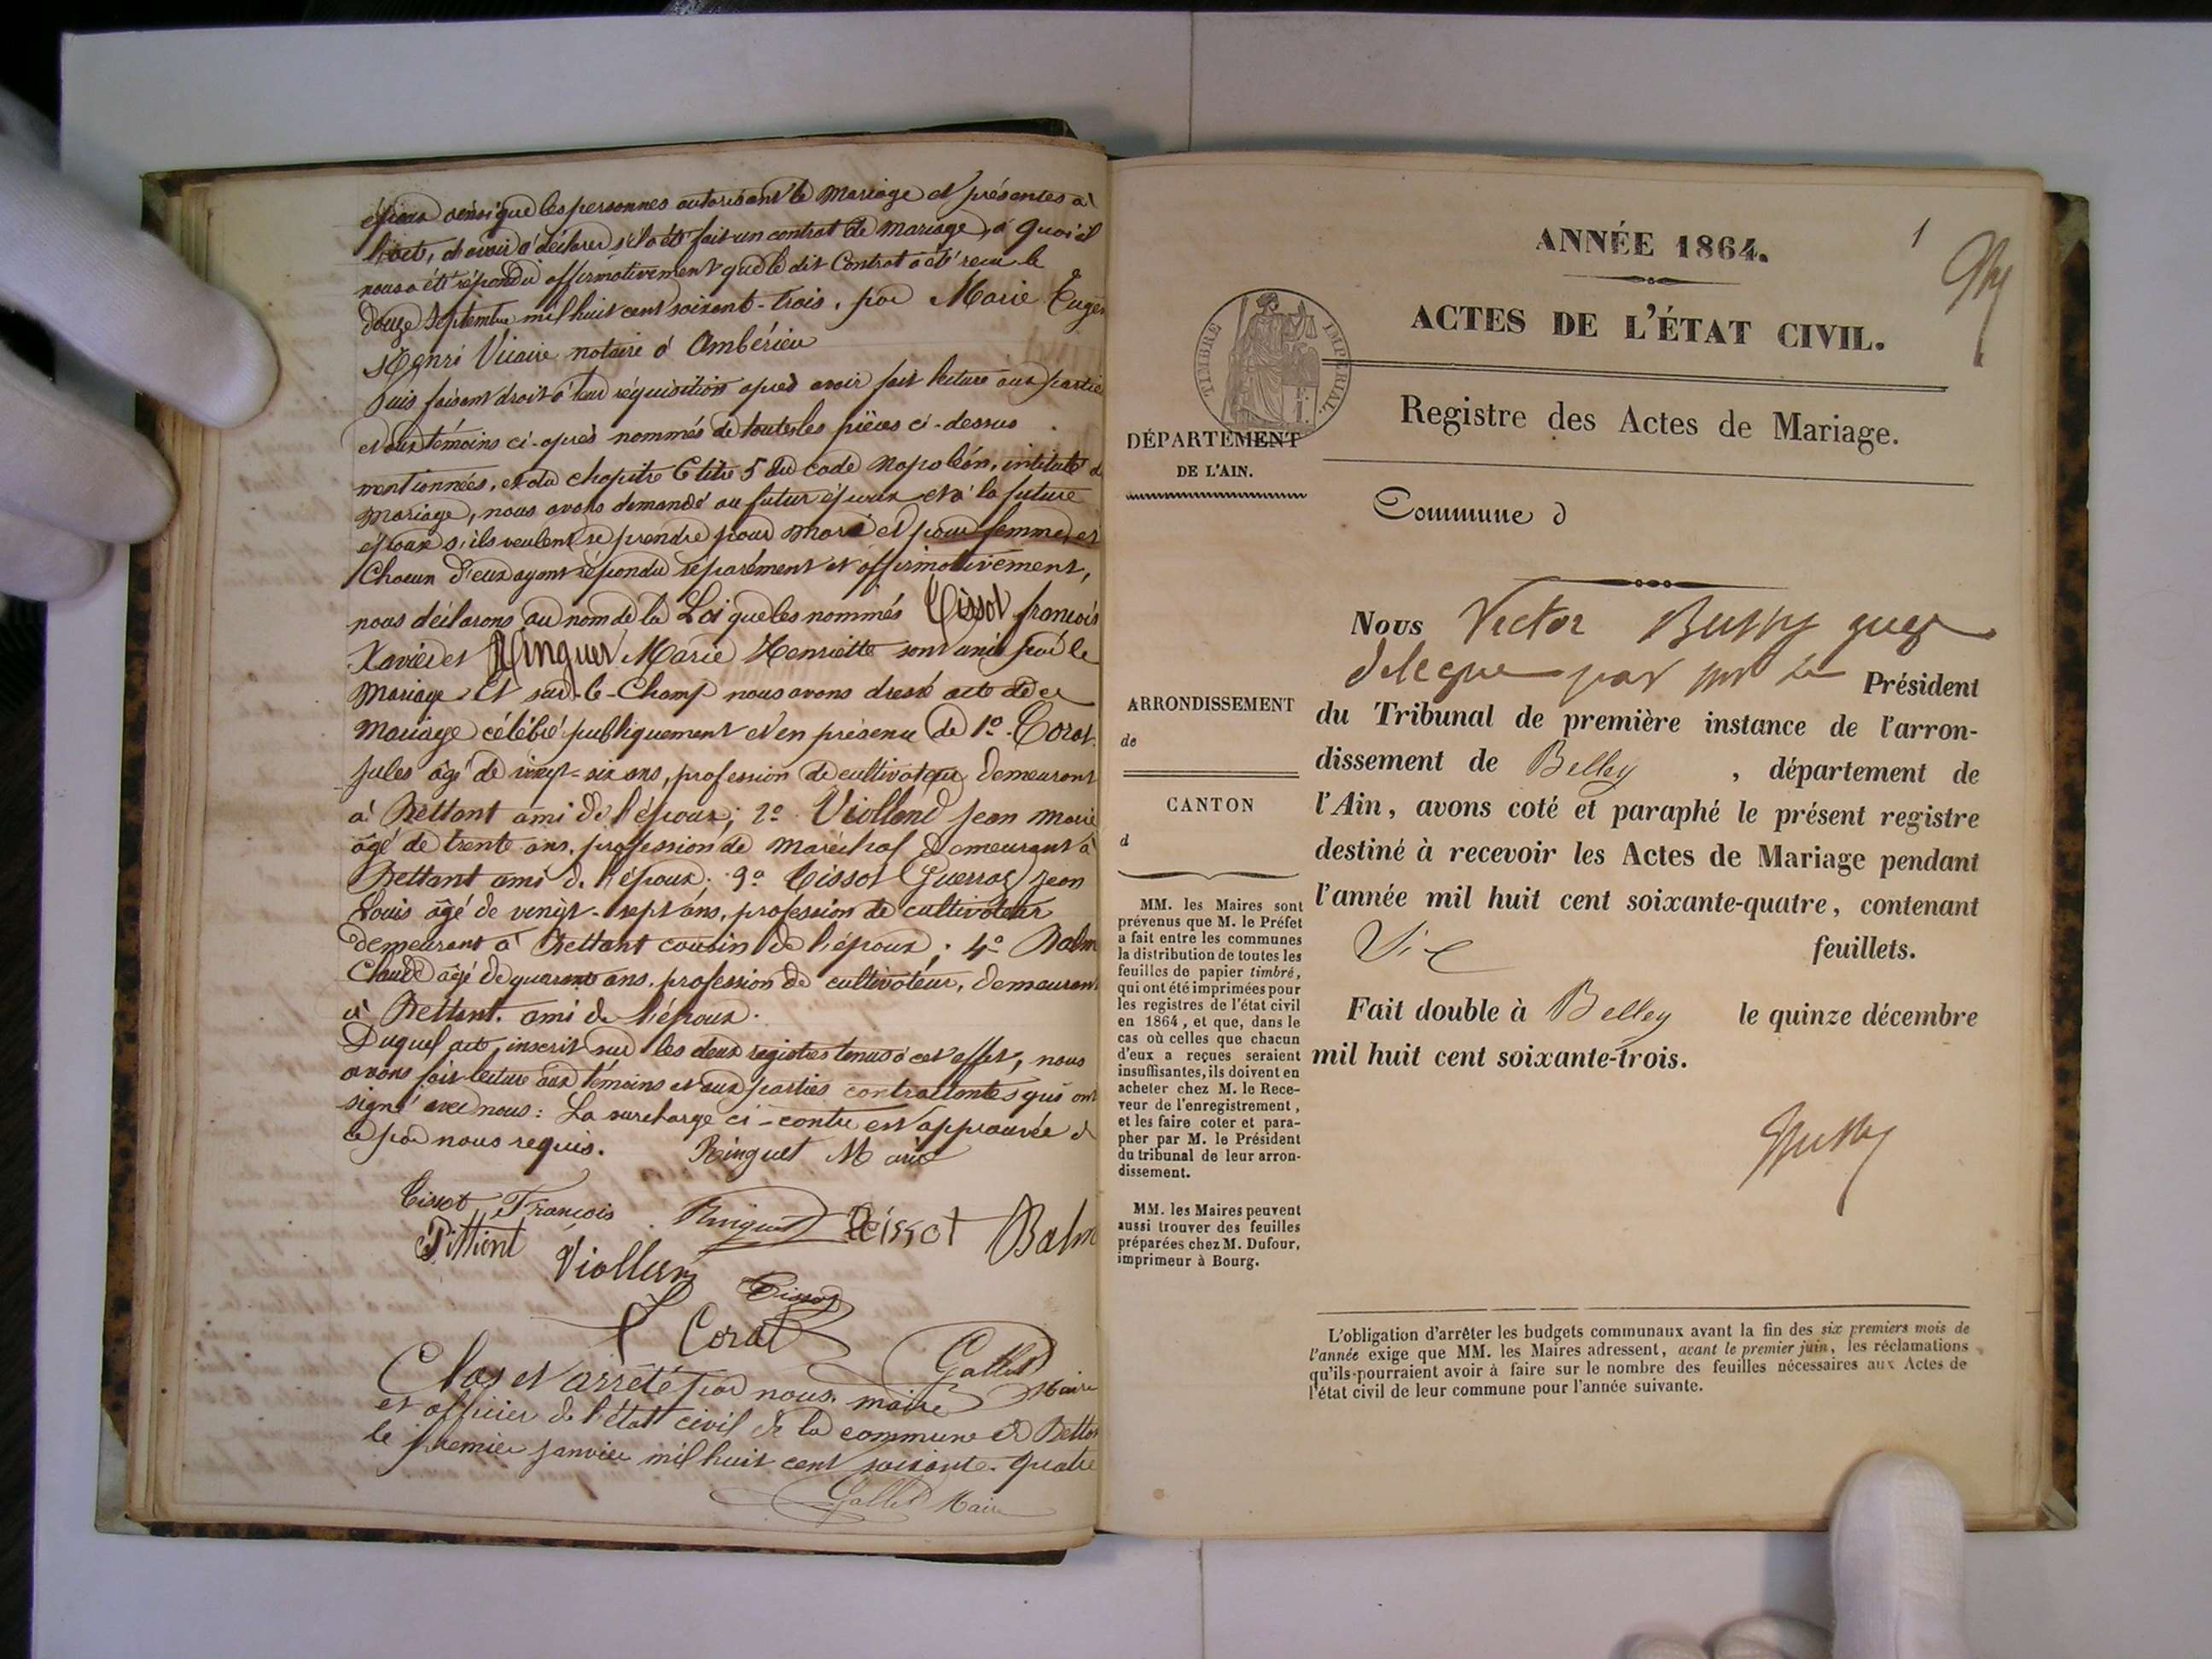 époux ainsi que les personnes autorisant le mariage et présentes à
l'acte, d'avoir à déclarer s'il a été fait un contrat de mariage, à quoi il
nous a été répondu affirmativement que le dit Contrat a été reçu le
douze septembre mil huit cent soixante-trois, par Marie Eugèn
Henri Vicaire notaire à Ambérieu
Puis faisant droit à leur réquisition après avoir fait lecture aux partie
et aux témoins ci-après nommés de toutes les pièces ci-dessus
mentionnées, et du chapitre 6 titre 5 du code Napoléon, intitulé du
mariage, nous avons demandé au futur époux et à la future
épouse s'ils veulent se prendre pour mari et pour femme, et
Chacun d'eux ayant répondu séparément et affirmativement,
nous déclarons au nom de la Loi que les nommés Tissot françois
Xavier et Ringuet Marie Henriette sont unis par le
mariage. Et sur-le-Champ nous avons dressé acte de ce
mariage célébré publiquement et en présence de 1º Corat
jules âgé de vingt-six ans, profession de cultivateur demeurant
à Bettant ami de l'époux; 2º Viollend jean marie
âgé de trente ans, profession de maréchal demeurant à
Bettant ami de l'époux; 3º Tissot Guerraz jean
Louis âgé de vengt-sept ans, profession de cultivateur
demeurant à Bettant cousin de l'époux; 4º Balm
Claude âgé de quarante ans, profession de cultivateur, demeurant
à Bettant. ami de l'époux.
Duquel acte, inscrit sur les deux registres tenus à cet effet, nous
avons fait lecture aux témoins et aux parties contractantes qui ont
signé avec nous: La surcharge ci-contre est approuvée
ce par nous requis. Ringuet Marie
Tissot François Ringuet Teissot Balm
Pittiont Viollend
Tissot
Corat
Gallet Maire
Clos et arrêté par nous, maire
et officier de l'état civil de la commune de Bettan
le premier janvier mil huit cent soixante-quatre
Gallet Maire
1
ANNÉE 1864.
ACTES DE L'ÉTAT CIVIL.
TIMBRE IMPÉRIAL.
Registre des Actes de Mariage.
DÉPARTEMENT
DE L'AIN.
Commune d
Nous Victor Bussy juge
délégué par mr le Président
ARRONDISSEMENT
de
CANTON
d
du Tribunal de première instance de l'arron-
dissement de Belley , département de
l'Ain, avons coté et paraphé le présent registre
destiné à recevoir les Actes de Mariage pendant
l'année mil huit cent soixante-quatre, contenant
Six feuillets.
Fait double à Belley le quinze décembre
mil huit cent soixante-trois.
Bussy
MM. les Maires sont
prévenus que M. le Préfet
a fait entre les communes
la distribution de toutes les
feuilles de papier timbré,
qui ont été imprimées pour
les registres de l'état civil
en 1864, et que, dans le
cas où celles que chacun
d'eux a reçues seraient
insuffisantes, ils doivent en
acheter chez M. le Rece-
veur de l'enregistrement,
et les faire coter et para-
pher par M. le Président
du tribunal de leur arron-
dissement.
MM. les Maires peuvent
aussi trouver des feuilles
préparées chez M. Dufour,
imprimeur à Bourg.
L'obligation d'arrêter les budgets communaux avant la fin des six premiers mois de
l'année exige que MM. les Maires adressent, avant le premier juin, les réclamations
qu'ils pourraient avoir à faire sur le nombre des feuilles nécessaires aux Actes de
l'état civil de leur commune pour l'année suivante.